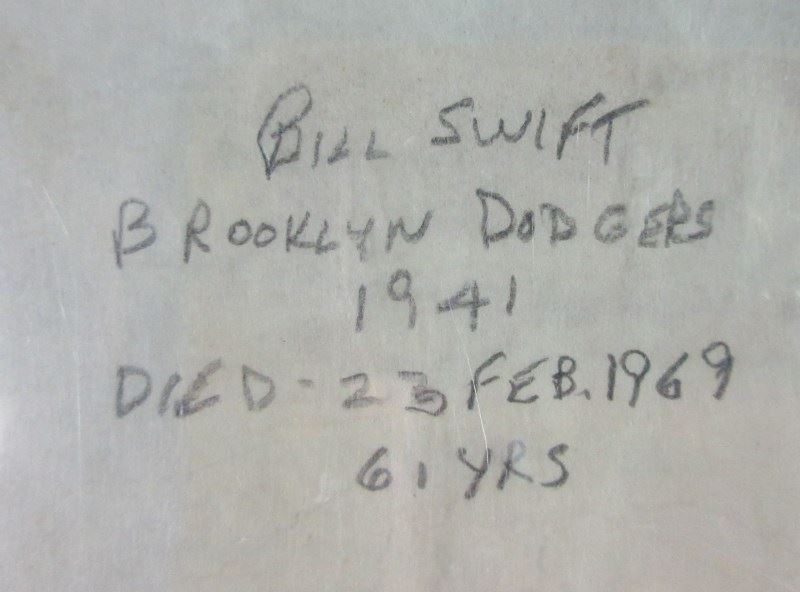 BILL SWIFT
BROOKLYN DODGERS
1941
DIED - 23 FEB. 1969
61 YRS